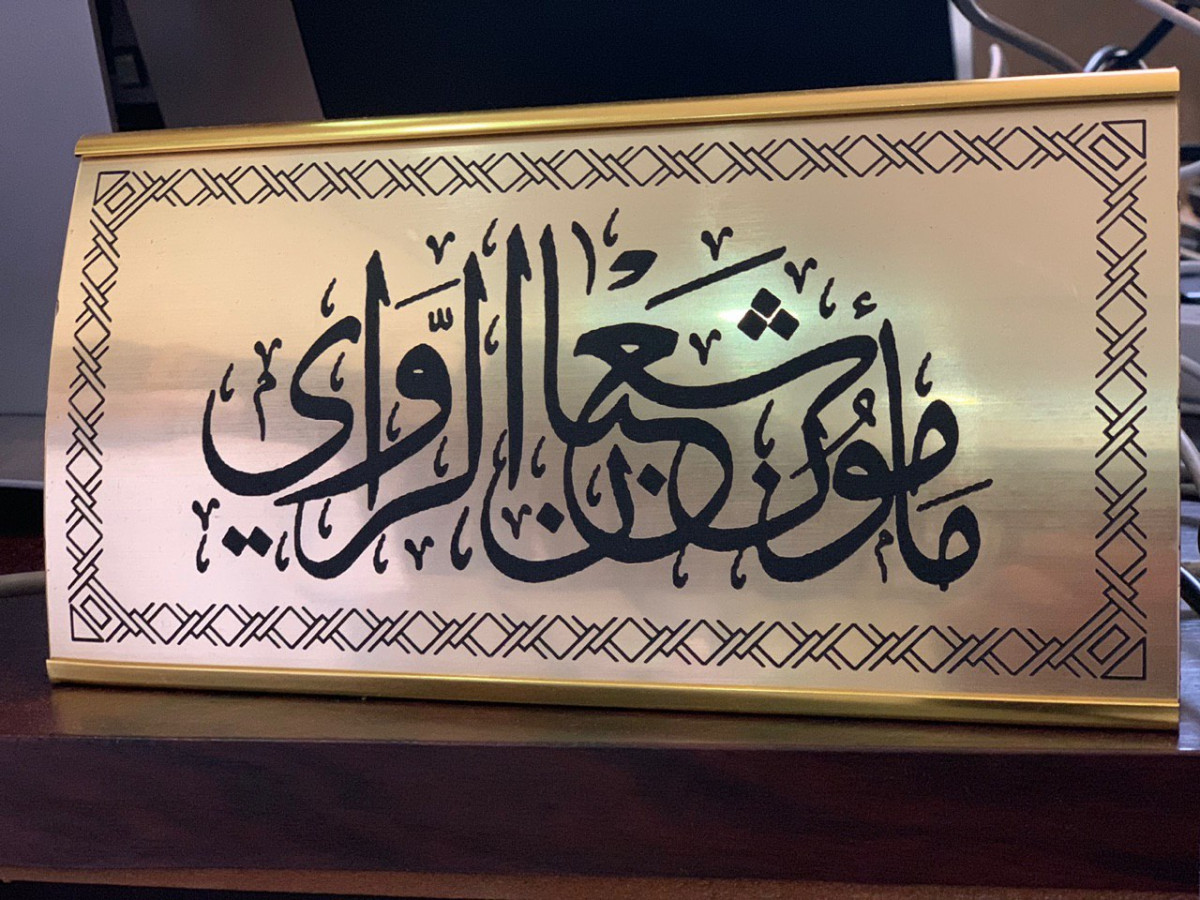 مأمون شعبان الراوي